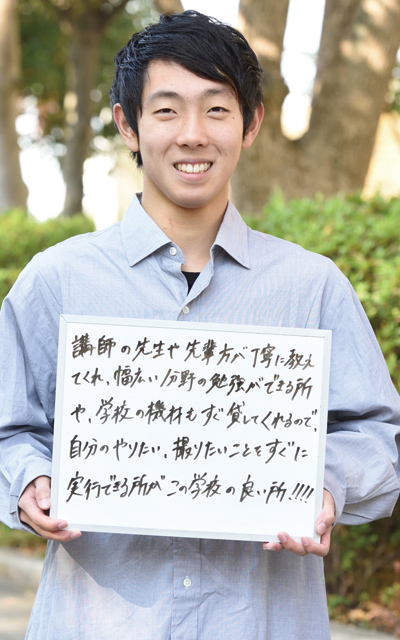 講師の先生や先輩方が丁寧に教え
てくれ、幅広い分野の勉強ができる所
や、学校の機材もすぐ貸してくれるので、
自分のやりたい、撮りたいことをすぐに
実行できる所がこの学校の良い所!!!!